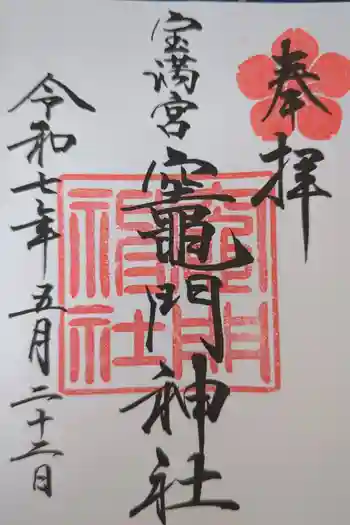 奉拝
宝満宮
竈門神社
竈門神社
令和七年五月二十二日